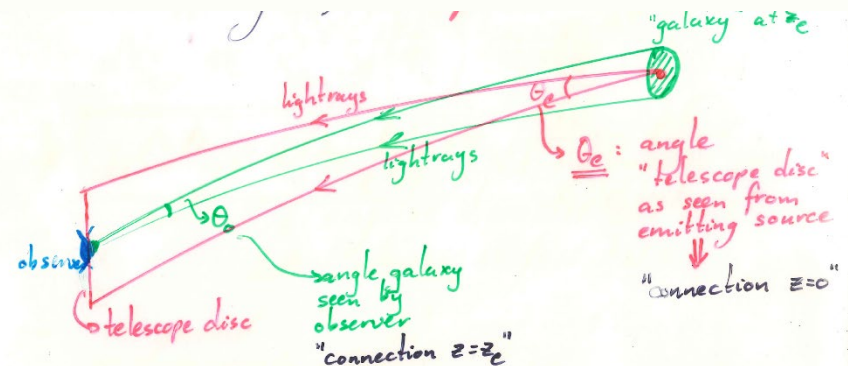 "galaxy at z_e
lightrays
θ_e
lightrays
θ_e : angle
"telescope disc"
as seen from
emitting source
"connection z=0"
θ_o
observer
angle galaxy
seen by
observer
"connection z=z_e"
telescope disc